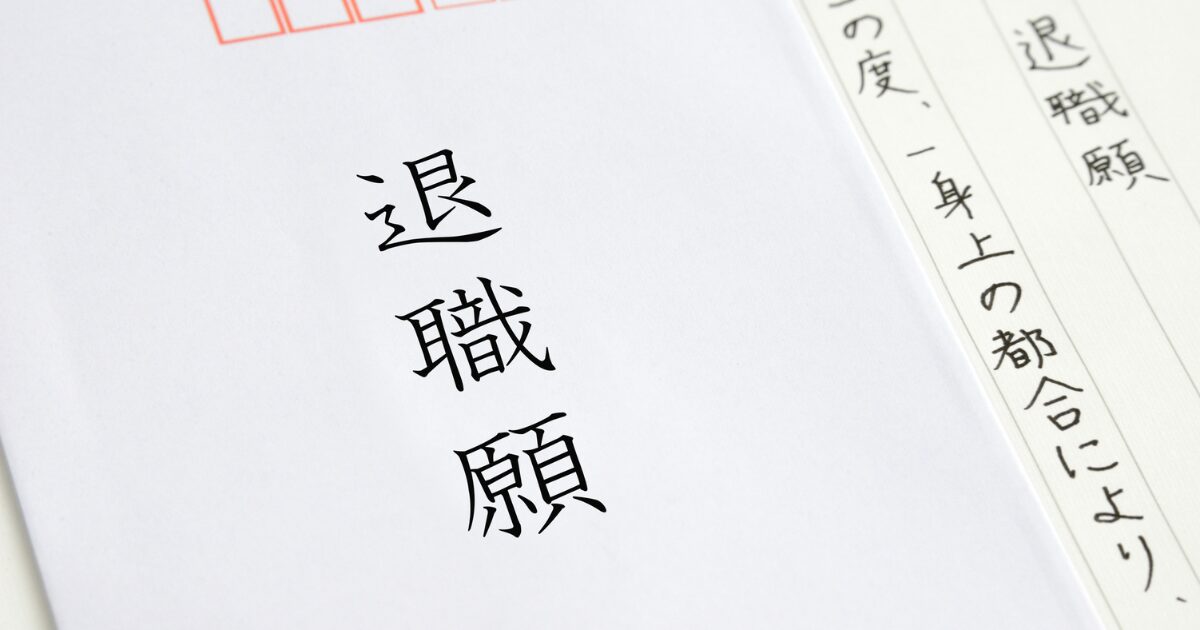 退職願
退職願
この度、一身上の都合により、